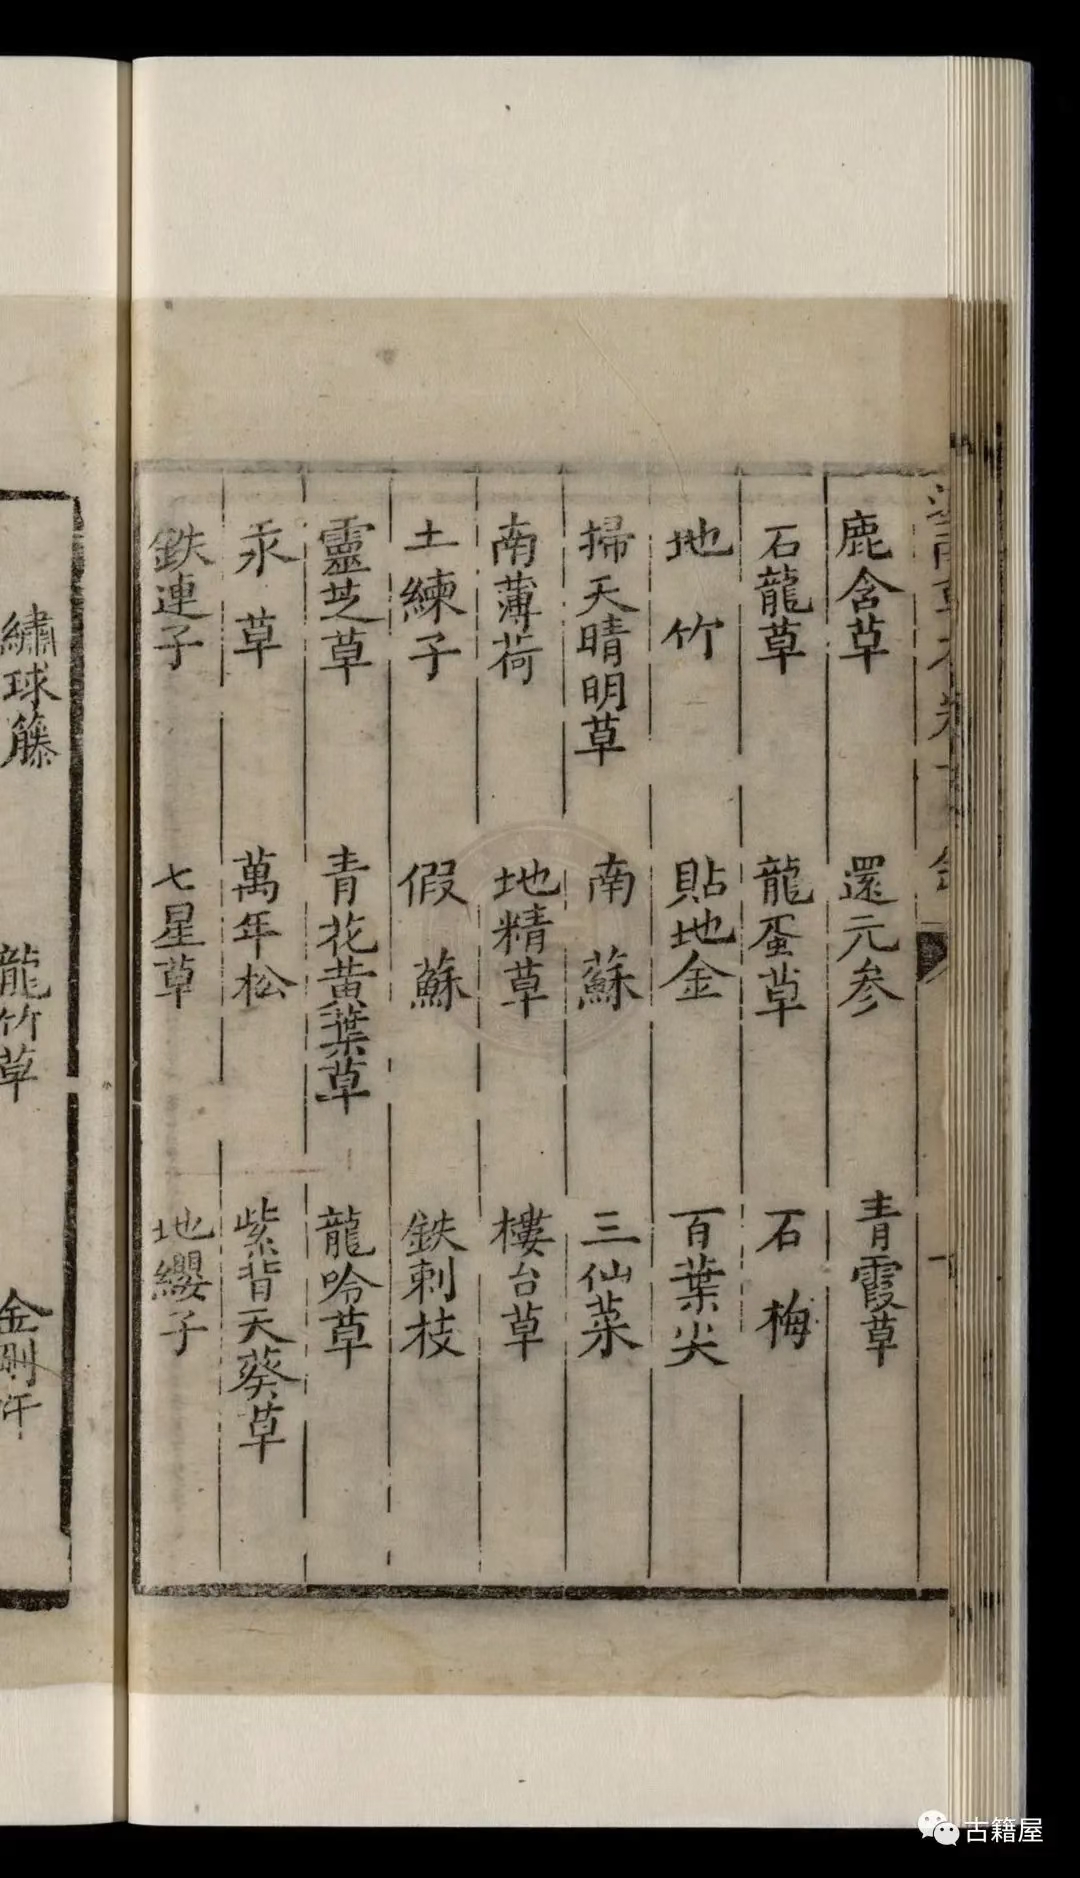 鹿含草 還元参 青霞草
石龍草 龍蛋草 石梅
地竹 貼地金 百葉尖
掃天晴明草 南蘇 三仙菜
南薄荷 地精草 樓台草
土練子 假蘇 鉄刺枝
靈芝草 青花黄葉草 龍吟草
汞草 萬年松 紫背天葵草
鉄連子 七星草 地纓子
繡球籐 龍竹草 金剛
古籍屋